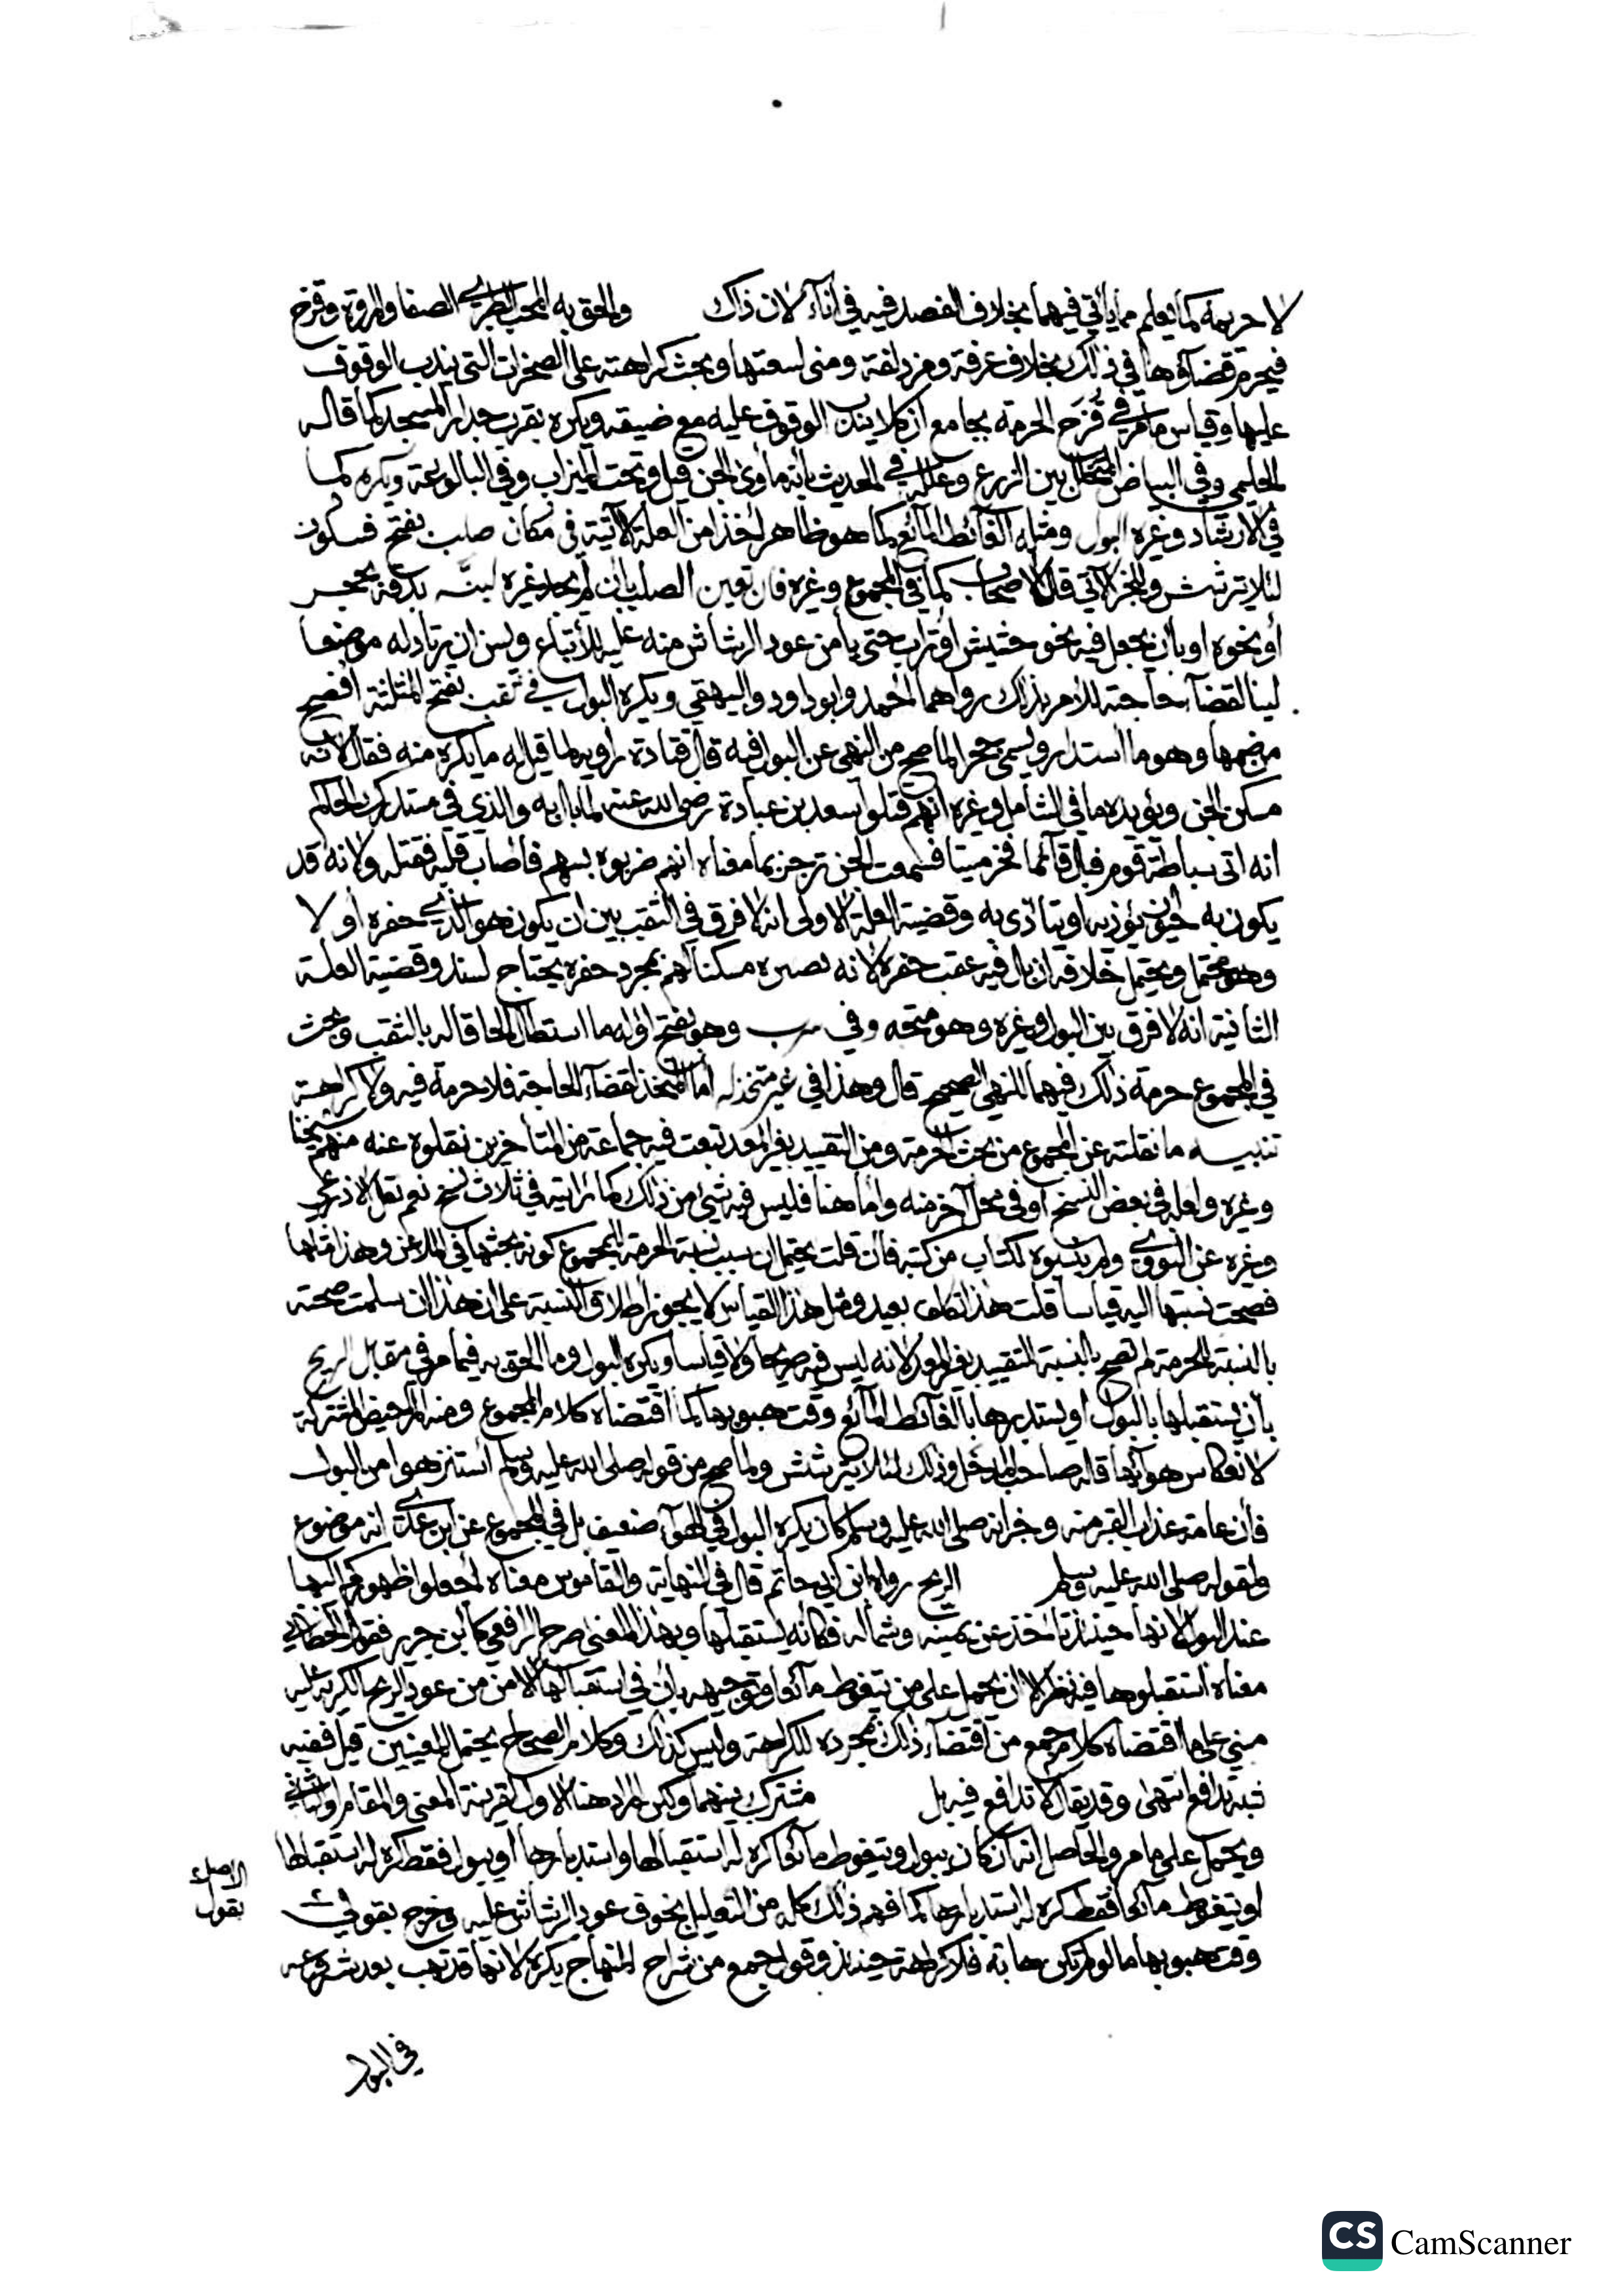 لا حرمة كما يعلم مما يأتي فيهما بخلاف الفصد فيه في اناء لان ذاك والحق به المحب الطبري الصفا والمروة وقزح
فيحرم قضاؤها في ذلك بخلاف عرفة ومزدلفة ومنى لسعتها وبحث كراهته على الصخرات التي يندب الوقوف
عليها وقياس ما مر في قزح الحرمة بجامع ان كلا يندب الوقوف عليه مع ضيقه ويكره بقرب جدار المسجد كما قاله
الحليمي وفي البياض المتخلل بين الزرع وعلله في الحديث بانه مأوى الجن قيل وتحت الميزاب وفي البالوعة ويكره كما
في الارشاد وغيره البول ومثله الغائط المائع كما هو ظاهر اخذا من العلة الآتية في مكان صلب بفتح فسكون
لئلا يترشش وللخبر الآتي قال الاصحاب كما في المجموع وغيره فان تعين الصلب بان لم يجد غيره لينه بدقه بحجر
أو نحوه او بان يجعل فيه نحو حشيش او تراب حتى يأمن عود الرشاش منه عليه للأتباع ويسن ان يرتاد له موضعا
لينا لقضاء حاجته للامر بذلك رواهما احمد وابو داود والبيهقي ويكره البول في ثقب بفتح المثلثة افصح
من ضمها وهو ما استدار ويسمى جحر لما صح من النهي عن البول فيه قال قتادة راويه لما قيل له ما يكره منه فقال لانه
مسكن الجن ويؤيده ما في الشامل وغيره انهم قتلوا سعد بن عبادة رضي الله عنه لما بال به والذي في مستدرك الحاكم
انه اتى سباطة قوم فبال قائما فخر ميتا فسمعت الجن ترجز بما معناه انهم ضربوه بسهم فاصاب قلبه فقتله ولانه قد
يكون به حيوان يؤذيه او يتأذى به وقضية العلة الاولى انه لا فرق في الثقب بين ان يكون هو الذي حفره أو لا
وهو محتمل ويحتمل خلافه ان بال فيه عقب حفره لانه تصيره مسكنا لهم بمجرد حفره يحتاج لسند وقضية العلة
الثانية انه لا فرق بين البول وغيره وهو متجه وفي سرب وهو بفتح اوله ما استطال الحاقا له بالثقب وبحث
في المجموع حرمة ذلك فيهما للنهي الصحيح قال وهذا في غير متخذ له اما المتخذ لقضاء الحاجة فلا حرمة فيه ولا كراهة
تنبيه ما نقلته عن المجموع من بحث الحرمة ومن التقييد بغير المعد تبعت فيه جماعة من المتأخرين نقلوه عنه منهم شيخنا
وغيره ولعله في بعض النسخ او في محل آخر منه واما هنا فليس فيه شيء من ذلك كما رايته في ثلاث نسخ نعم نقل الاذرعي
وغيره عن النووي ولم ينسبوه لكتاب من كتبه فان قلت يحتمل ان سبب نسبة الحرمة للمجموع كونه بحثها في الملاعن وهذا مثلها
فصحت نسبتها اليه قياسا قلت هذا تكلف بعيد ومثل هذا القياس لا يجوز اطلاق النسبة على ان هذا ان سلمت صحته
بالنسبة للحرمة لم تصح بالنسبة للتقييد بغير المعد لانه ليس فيه صريحا ولا قياسا ويكره البول وما الحق به فيما مر في مقابل الريح
بأن يستقبلها بالبول او يستدبرها بالغائط المائع وقت هبوبها كما اقتضاه كلام المجموع ومنه المراحيض المشتركة
لانعكاس هوائها قاله صاحب المدخل وذلك لئلا يترشش ولما صح من قوله صلى الله عليه وسلم استنزهوا من البول
فأن عامة عذاب القبر منه وخبر انه صلى الله عليه وسلم كان يكره البول في الهواء ضعيف بل في المجموع عن ابن عدي انه موضوع
ولقوله صلى الله عليه وسلم الريح رواه ابن ابي حاتم قال في النهاية والقاموس معناه اجعلوا ظهوركم اليها
عند البول لانها حينئذ تأخذ عن يمينه وشماله فكأنه يستقبلها وبهذا المعنى صرح الرافعي كابن جرير فقول الخطابي
معناه استقبلوها فيه نظر الا ان يحمل على من يتغوط مائعا وتوجيهه بأن في استقبالها الامن من عود الريح الكريه عليه
مبني على ما اقتضاه كلام جمع من اقتضاء ذلك بمجرده للكراهة وليس كذلك وكلام الصحاح يحتمل المعنيين قيل ففيه
شبه تدافع انتهى وقد يقال لا تدافع فيه بل مشترك بينهما ولكن المراد هنا الاول لقرينة المعنى والمقام والثاني
ويحمل على ما مر والحاصل انه ان كان يبول ويتغوط مائعا كره له استقبالها واستدبارها او يبول فقط كره له استقبالها
او يتغوط مائعا فقط كره له استدبارها كما فهم ذلك كله من التعليل بخوف عود الرشاش عليه وخرج بقولي
الاصل
بقول
وقت هبوبها ما لو لم تكن هابة فلا كراهة حينئذ وقول جمع من شراح المنهاج يكره لانها قد تهب بعد شروعه
في البول
CS CamScanner